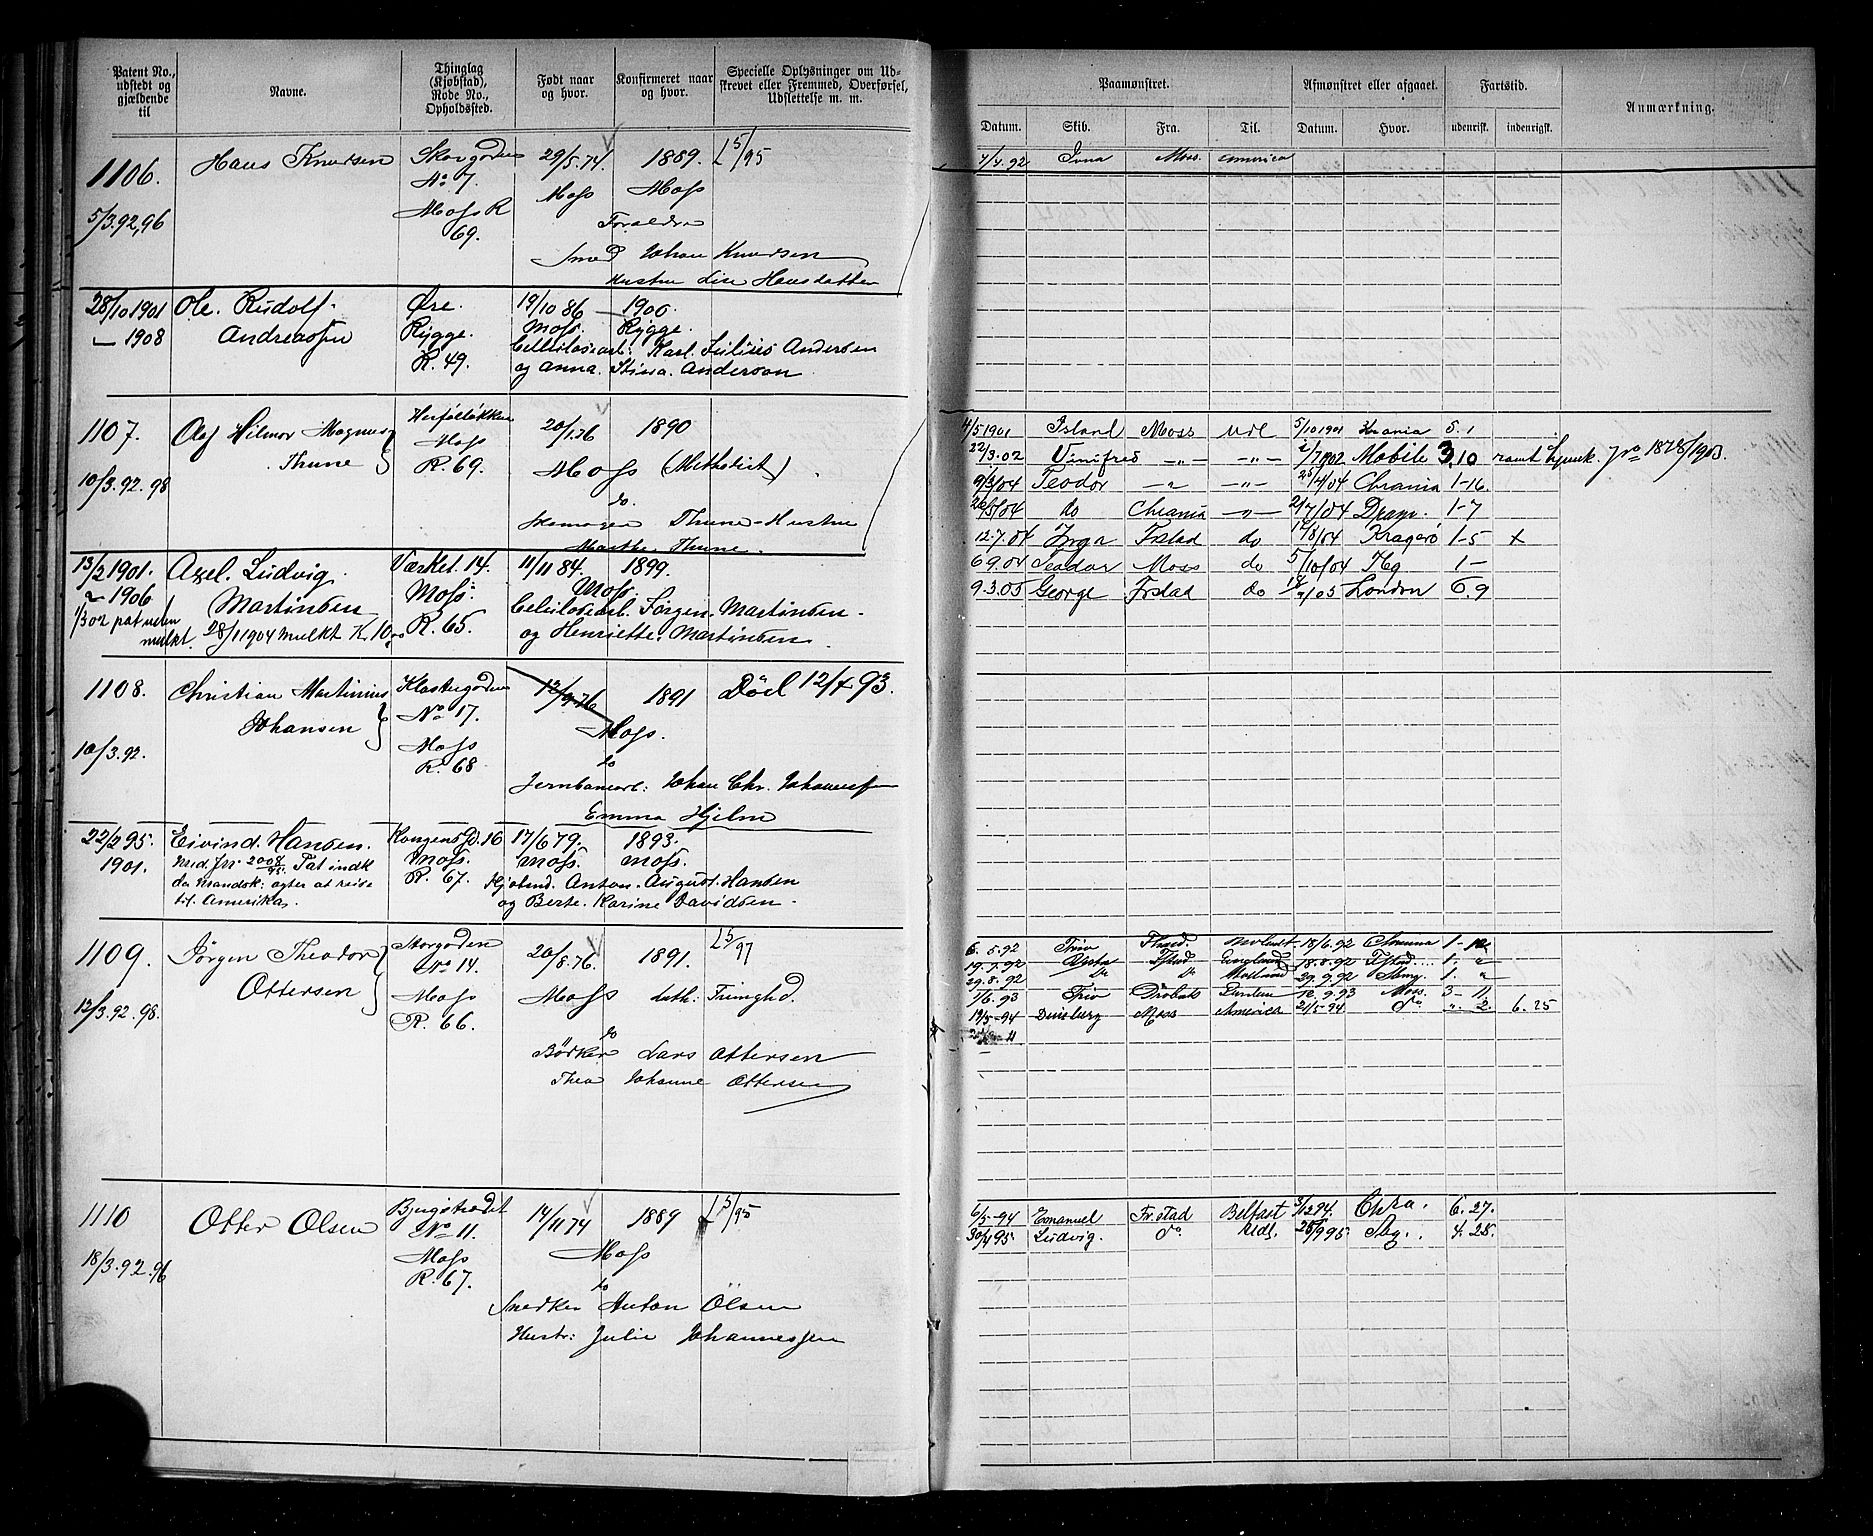 Patent No., udstedt og gjældende til
Navne.
Thinglag (Kjøbstad), Rode No., Opholdssted.
Født naar og hvor.
Konfirmeret naar og hvor.
Specielle Oplysninger om Udskrevet eller Fremmed, Overførsel, Udslettelse m. m.
Paamønstret.
Afmønstret eller afgaaet.
Fartstid.
Anmærkning.
Datum. Skib. Fra. Til. Datum. Hvor. udenrigsk. indenrigsk.
1106. Hans Knudsen
No 7. 29/5.74 1889. L 5/95
Moss R 69. Moss Moss
5/3.92,96
Forældre
Smed Johan Knudsen
Hustru Lise Hansdatter
7/4.92 Moss America
28/10 1901 Ole. Rudolf. Øre. 19/10 86 1900.
— 1908 Andreassen Rygge. Moss. Rygge.
R. 49. Karl. Julius Andersen
og Anna. Stina. Anderson.
1107. Hilmar Magnus Thune
Moss R. 69. 20/1.76 1890
10/3.92.98 Moss (Methodist)
do
Thune - Hustru
Marthe Thune.
4/5 1901 Island Moss Udl 5/10 1901 Krania 5.1
22/3.02 Vinifred —„— —„— 1/7 1902 Mobile 3.10
9/3/04 Teodor —„— —„— 25/4/04 Chrania 1-16.
do Chrania —„— 2/7/04 Dram. 1-7
12.7.04 Inga Frstad do 17/8/04 Kragerø 1-5 +
6 9.04 Teodor Moss do 5/10/04 Hg 1-
9.3.05 George Frstad do London 6.9
13/2 1901. Axel. Ludvig. Værket. 14. 11/11 84. 1899.
— 1906 Martinsen Moss: Moss.
1/3 02 pat uden mulkt. 28/1 1904 mulkt K. 10,00 R. 65.
Celulosearb. Jørgen. Martinsen.
og Henriette. Martinsen
1108. Christian Martinius Johansen
No 17. Moss R. 68
1891 Død 12/4 93.
Moss.
10/3.92.
do
Jernbanearb: Johan Chr. Johannessen
Emma Hjelm
22/2 95. Eivind. Hansen. Kongensgd. 16 17/6 79. 1893.
1901. Moss. Moss. Moss.
R. 67.
Anton. August. Hansen
og Berte. Karine Davidsen.
til. Amerika.
1109. Jørgen Theodor Ottersen
Storgaden No 14. 20/8.76. 1891. L 5/97
Moss Moss
R. 66.
12/3.92.98.
do
Bødker Lars Ottersen
Thea Johanne Ottersen
6. 5.92 18/6.92 1-
19.7.92 England 18.8.92
29.8.92 do do 29.9.92 1.
1/6.93 12.9.93 Moss. 3-11.
19/5-94 Duisburg Moss America 21/5-94. do „ 2. 6.25
1110 Otter Olsen
No 11. 14/11 74 1889 L 5/95
Moss Moss
R. 67.
18/3.92.96
do
Snedker Anton Olsen
Hustr: Julie Johannessen
6/5-94 Emanuel Fr.stad Belfast 3/12 94. Chra. 6.27.
30/4 95. Ludvig. do. Udl. 25/9 95. Sbg. 4.25.